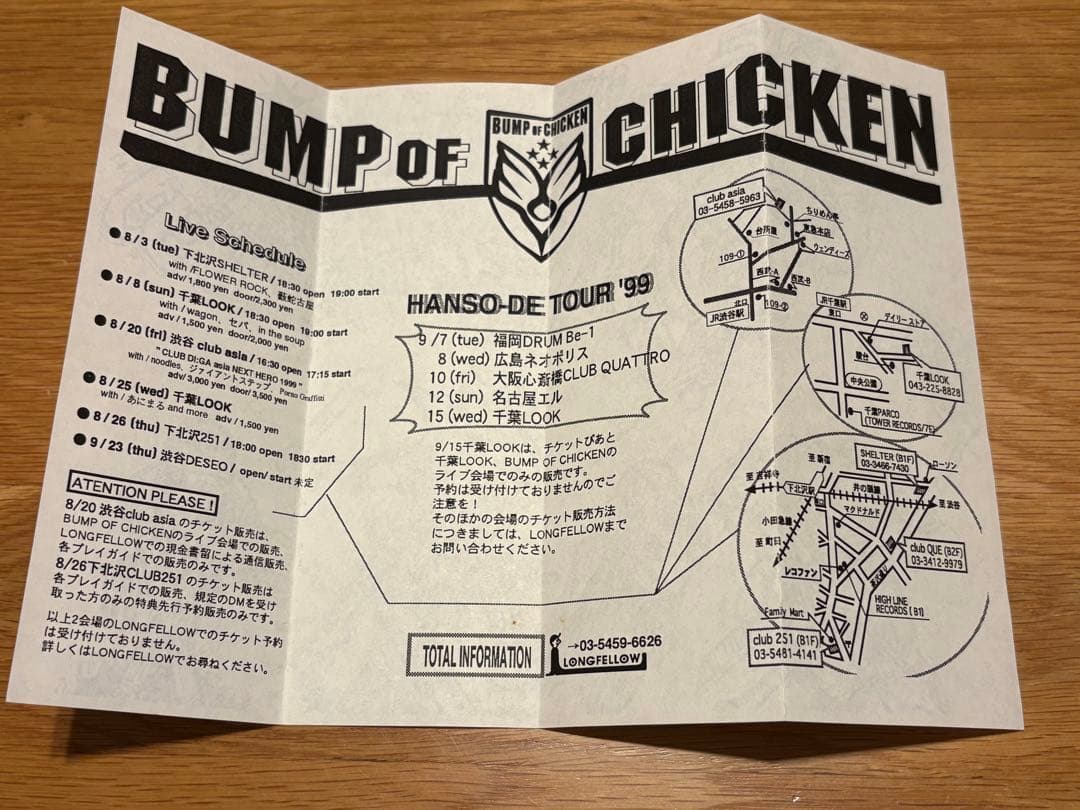 BUMP OF CHICKEN
BUMP OF CHICKEN
Live Schedule
● 8/3 (tue) 下北沢SHELTER / 18:30 open 19:00 start
with /FLOWER ROCK、藪蛇古屋
adv/1,800 yen door/2,300 yen
● 8/8 (sun) 千葉LOOK / 18:30 open 19:00 start
with / wagon、セバ、in the soup
adv / 1,500 yen door/2,000 yen
● 8/20 (fri) 渋谷 club asia / 16:30 open 17:15 start
" CLUB DI:GA asia NEXT HERO 1999 "
with / noodles、ジァイアントステップ、Porno Graffitti
adv/ 3,000 yen door/ 3,500 yen
● 8/25 (wed) 千葉LOOK
with / あにまる and more adv / 1,500 yen
● 8/26 (thu) 下北沢251 / 18:00 open 1830 start
● 9/23 (thu) 渋谷DESEO / open/ start 未定
ATENTION PLEASE !
8/20 渋谷club asia のチケット販売は、
BUMP OF CHICKENのライブ会場での販売、
LONGFELLOWでの現金書留による通信販売、
各プレイガイドでの販売のみです。
8/26下北沢CLUB251 のチケット販売は
各プレイガイドでの販売、規定のDMを受け
取った方のみの特典先行予約販売のみです。
以上2会場のLONGFELLOWでのチケット予約
は受け付けておりません。
詳しくはLONGFELLOWでお尋ねください。
HANSO-DE TOUR '99
9 /7 (tue) 福岡DRUM Be-1
8 (wed) 広島ネオポリス
10 (fri) 大阪心斎橋CLUB QUATTRO
12 (sun) 名古屋エル
15 (wed) 千葉LOOK
9/15千葉LOOKは、チケットぴあと
千葉LOOK、BUMP OF CHICKENの
ライブ会場でのみの販売です。
予約は受け付けておりませんのでご
注意を！
そのほかの会場のチケット販売方法
につきましては、LONGFELLOWまで
お問い合わせください。
TOTAL INFORMATION
→03-5459-6626
LONGFELLOW
club asia
03-5458-5963
ちりめん亭
台所屋
東急本店
ウェンディーズ
109-①
西武-A
西武-B
北口
109-②
JR渋谷駅
JR千葉駅
東口
デイリーストア
駿台
中央公園
千葉LOOK
043-225-8828
千葉PARCO
(TOWER RECORDS/7F)
SHELTER (B1F)
03-3466-7430
ローソン
至 新宿
至 吉祥寺
下北沢駅
井の頭線
至 渋谷
小田急線
マクドナルド
至 町田
レコファン
club QUE (B2F)
03-3412-9979
茶沢通り
HIGH LINE
RECORDS (B1)
Family Mart
club 251 (B1F)
03-5481-4141